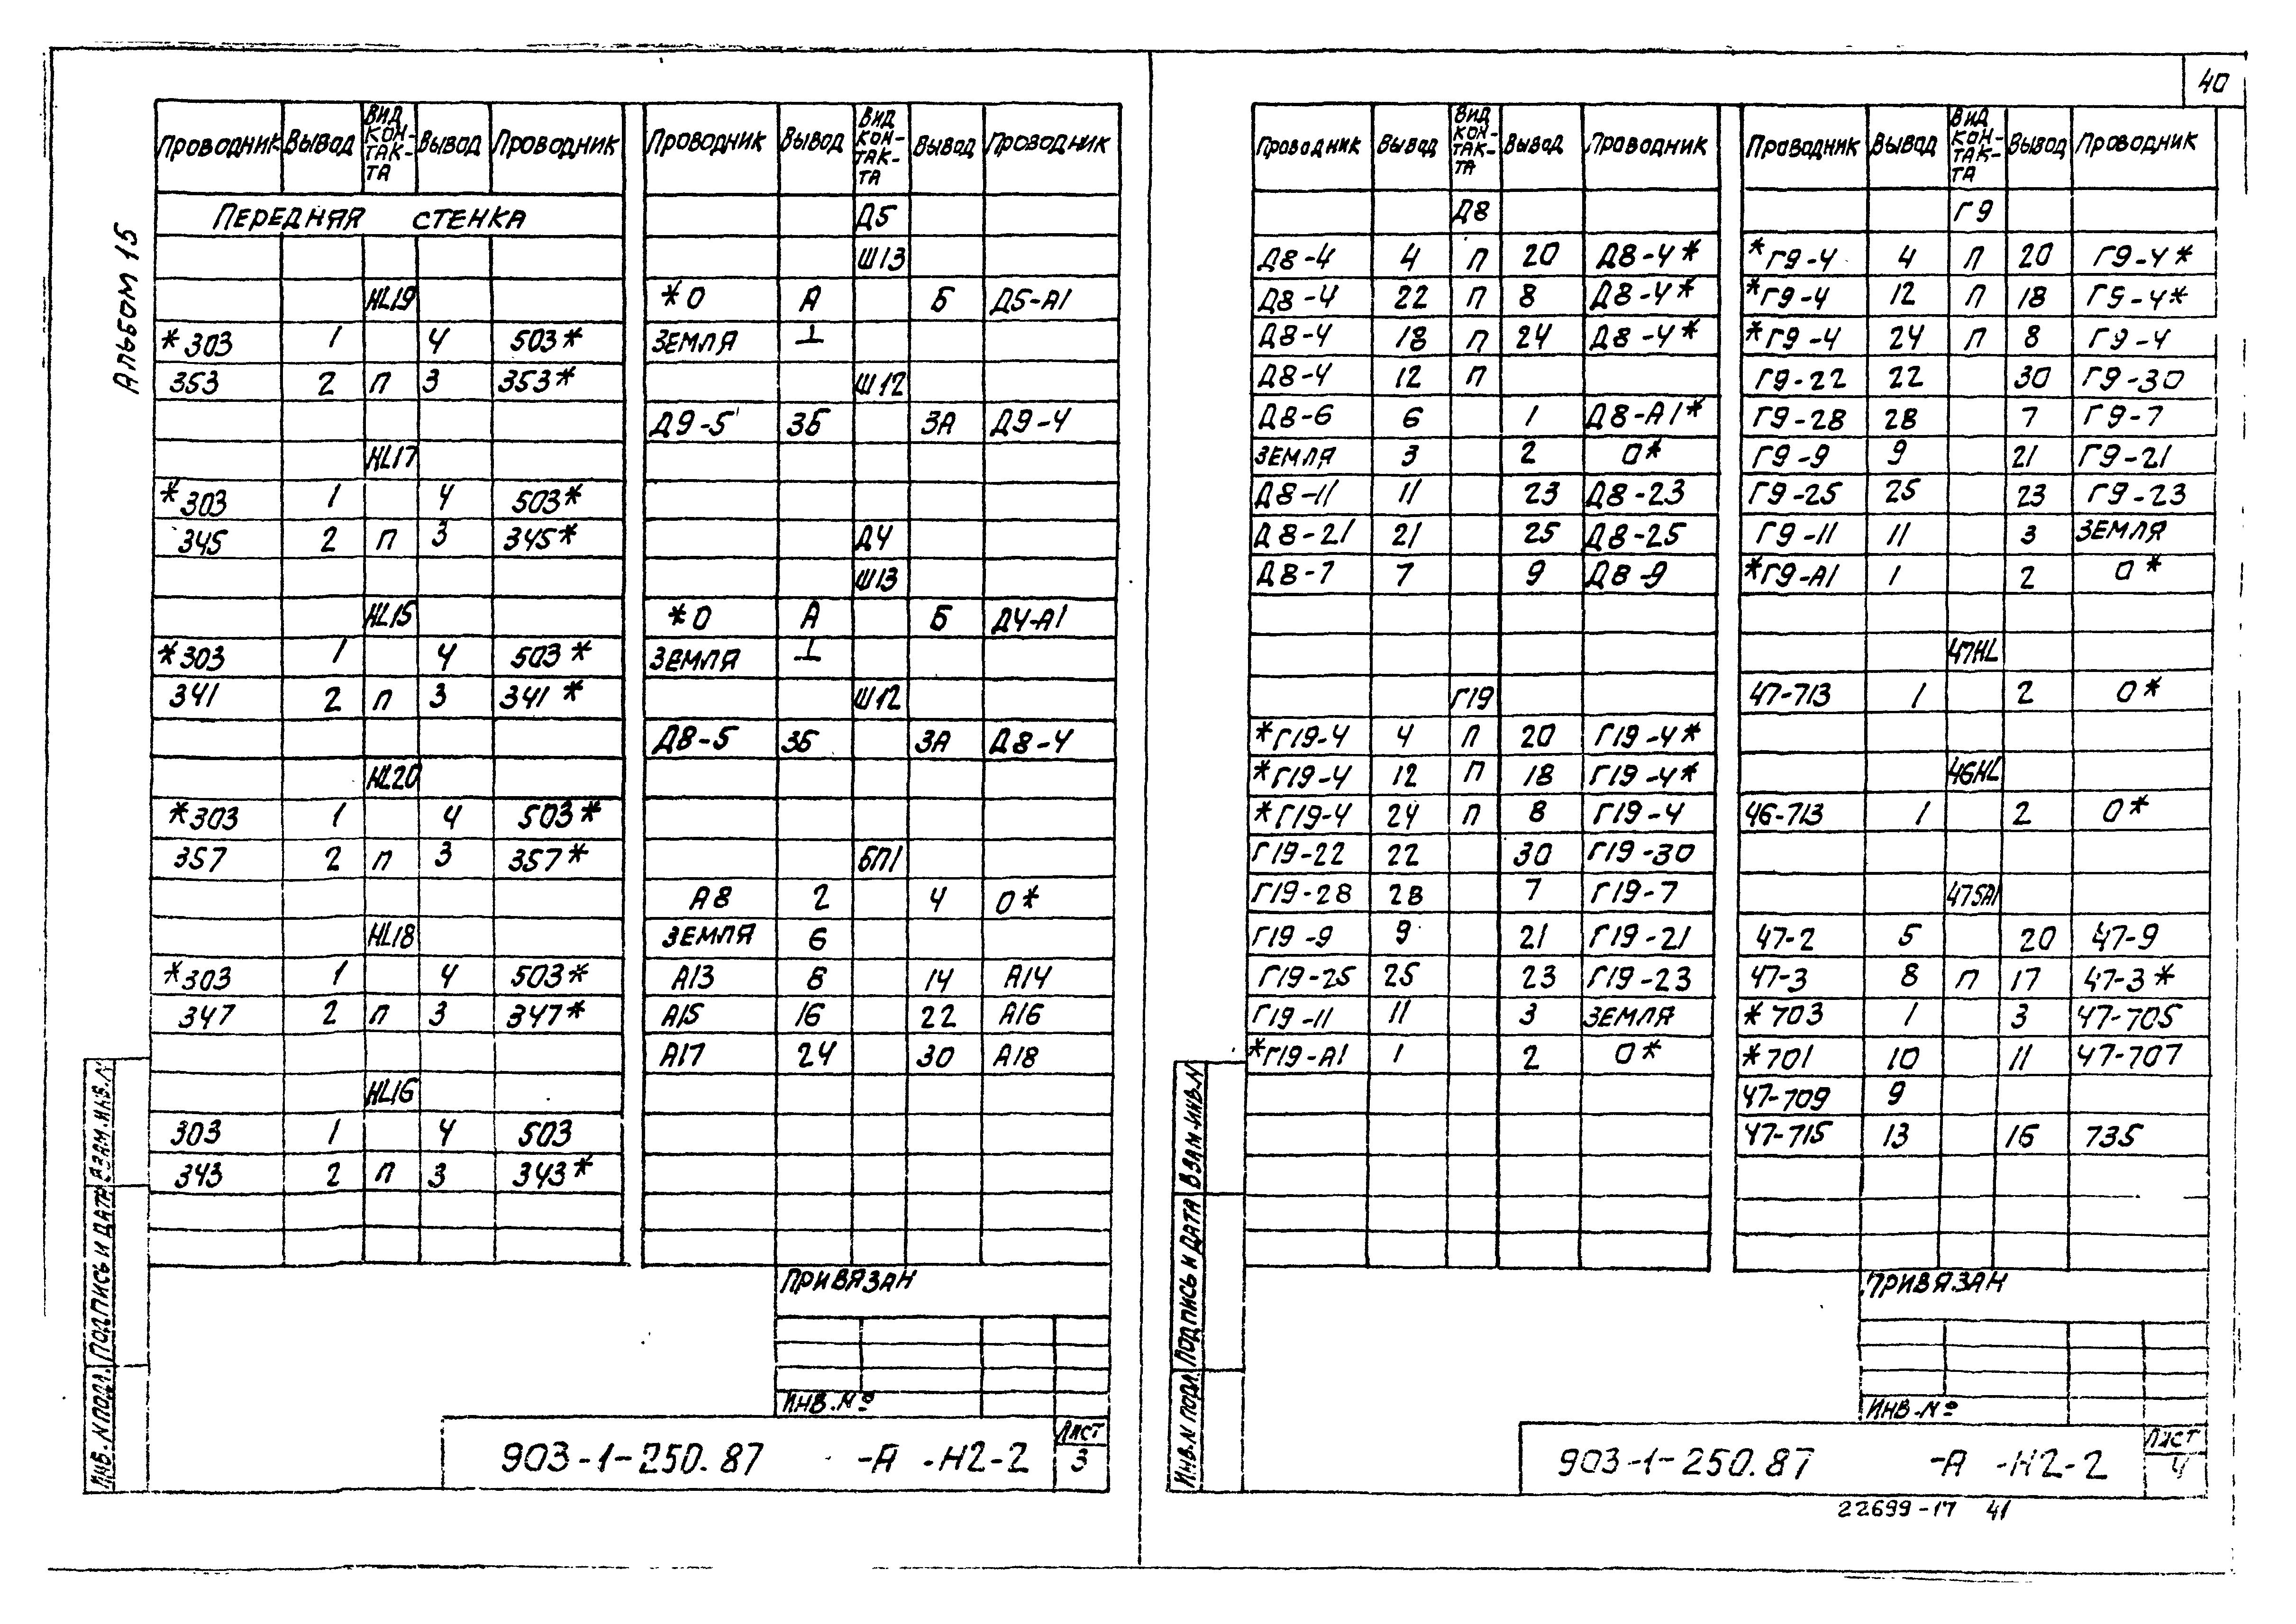 40
Альбом 15
Проводник Вывод Вид контакта Вывод Проводник
Передняя стенка
HL19
*303 1 4 503*
353 2 П 3 353*
HL17
*303 1 4 503*
345 2 П 3 345*
HL15
*303 1 4 503*
341 2 П 3 341*
HL20
*303 1 4 503*
357 2 П 3 357*
HL18
*303 1 4 503*
347 2 П 3 347*
HL16
303 1 4 503
343 2 П 3 343*
Проводник Вывод Вид контакта Вывод Проводник
Д5
Ш13
*0 А Б Д5-А1
Земля ⊥
Ш12
Д9-5 3Б 3А Д9-4
Д4
Ш13
*0 А Б Д4-А1
Земля ⊥
Ш12
Д8-5 3Б 3А Д8-4
БП1
А8 2 4 0*
Земля 6
А13 8 14 А14
А15 16 22 А16
А17 24 30 А18
Привязан
Инв.№
903-1-250.87 -А -Н2-2
Лист
3
Инв.N подл. Подпись и дата Взам.инв.N
Проводник Вывод Вид контакта Вывод Проводник
Д8
Д8-4 4 П 20 Д8-4*
Д8-4 22 П 8 Д8-4*
Д8-4 18 П 24 Д8-4*
Д8-4 12 П
Д8-6 6 1 Д8-А1*
Земля 3 2 0*
Д8-11 11 23 Д8-23
Д8-21 21 25 Д8-25
Д8-7 7 9 Д8-9
Г19
*Г19-4 4 П 20 Г19-4*
*Г19-4 12 П 18 Г19-4*
*Г19-4 24 П 8 Г19-4
Г19-22 22 30 Г19-30
Г19-28 28 7 Г19-7
Г19-9 9 21 Г19-21
Г19-25 25 23 Г19-23
Г19-11 11 3 Земля
*Г19-А1 1 2 0*
Проводник Вывод Вид контакта Вывод Проводник
Г9
*Г9-4 4 П 20 Г9-4*
*Г9-4 12 П 18 Г9-4*
*Г9-4 24 П 8 Г9-4
Г9-22 22 30 Г9-30
Г9-28 28 7 Г9-7
Г9-9 9 21 Г9-21
Г9-25 25 23 Г9-23
Г9-11 11 3 Земля
*Г9-А1 1 2 0*
47HL
47-713 1 2 0*
46HL
46-713 1 2 0*
47SA1
47-2 5 20 47-9
47-3 8 П 17 47-3*
*703 1 3 47-705
*701 10 11 47-707
47-709 9
47-715 13 16 735
Привязан
Инв.№
903-1-250.87 -А -Н2-2
Лист
4
Инв.N подл. Подпись и дата Взам.инв.N
22699-17 41